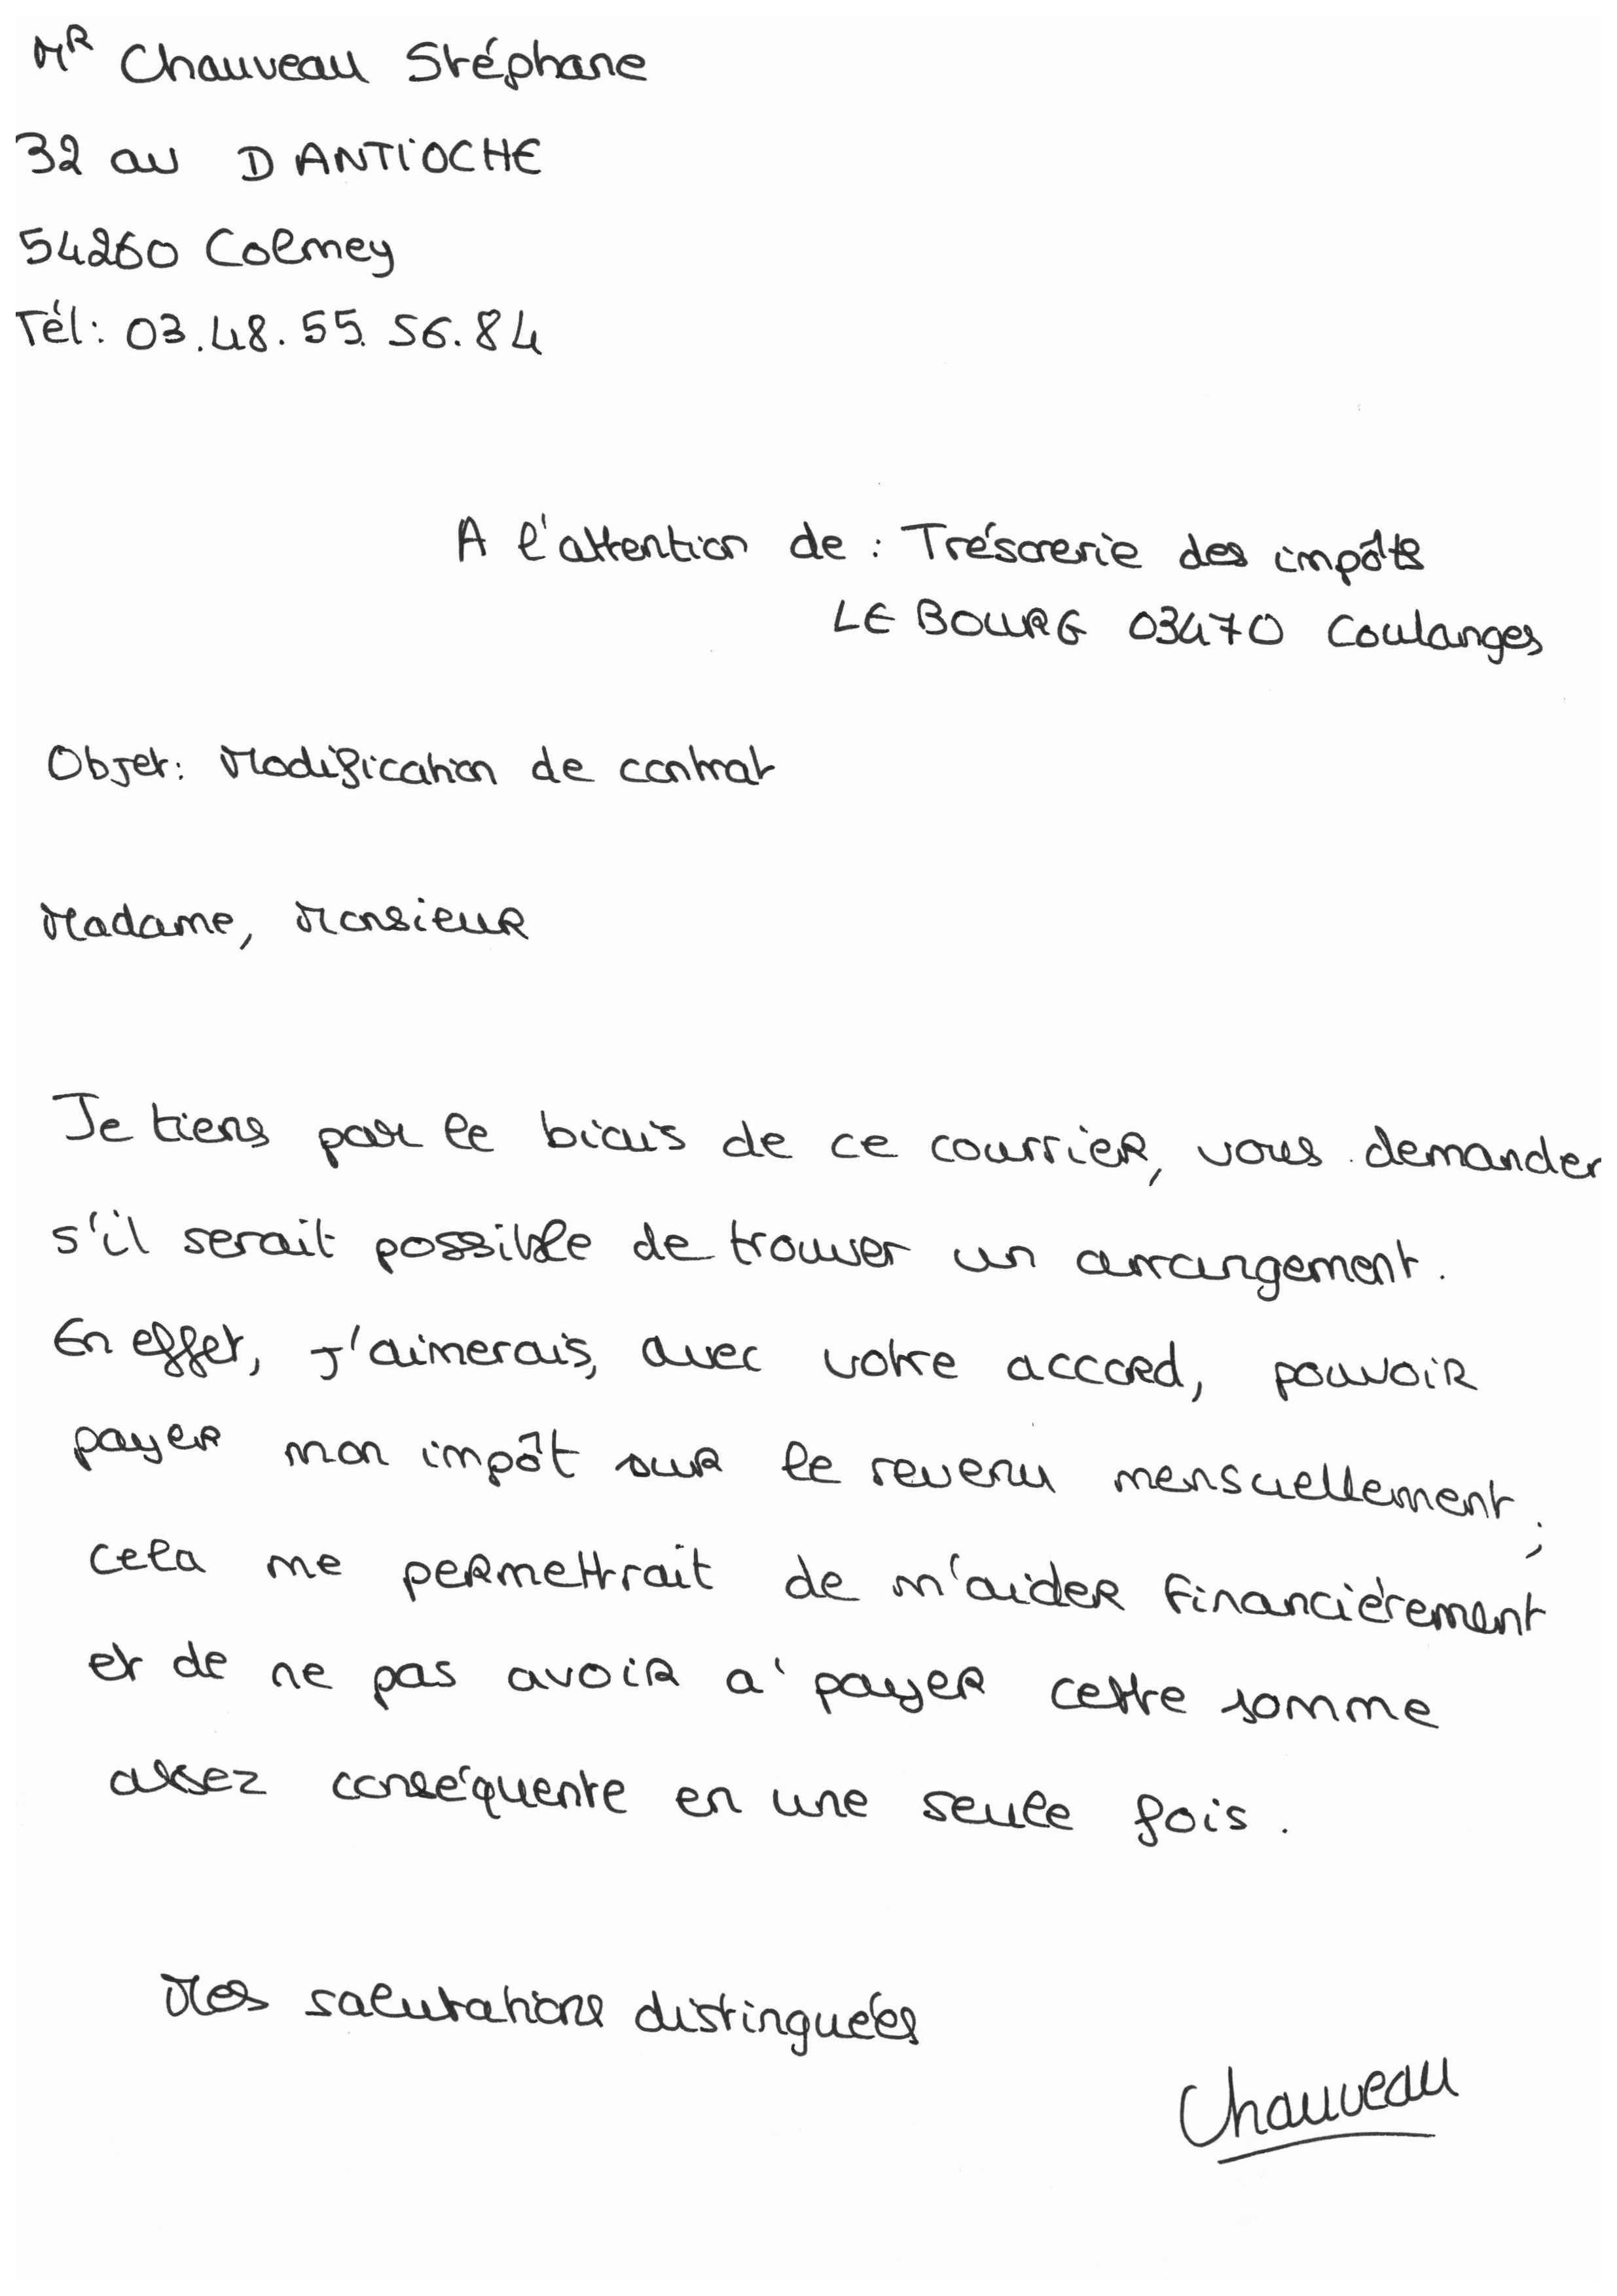 MR Chauveau Stéphane
32 av D ANTIOCHE
54260 Colmey
Tél: 03.48.55.56.84
A l'attention de : Trésorerie des impôts
LE BOURG 03470 Coulanges
Objet: Modification de contrat
Madame, Monsieur
Je tiens par le biais de ce courrier, vous demander
s'il serait possible de trouver un arrangement.
En effet, j'aimerais, avec votre accord, pouvoir
payer mon impôt sur le revenu mensuellement ;
cela me permettrait de m'aider financièrement
et de ne pas avoir à payer cette somme
assez conséquente en une seule fois.
Mes salutations distinguées
Chauveau